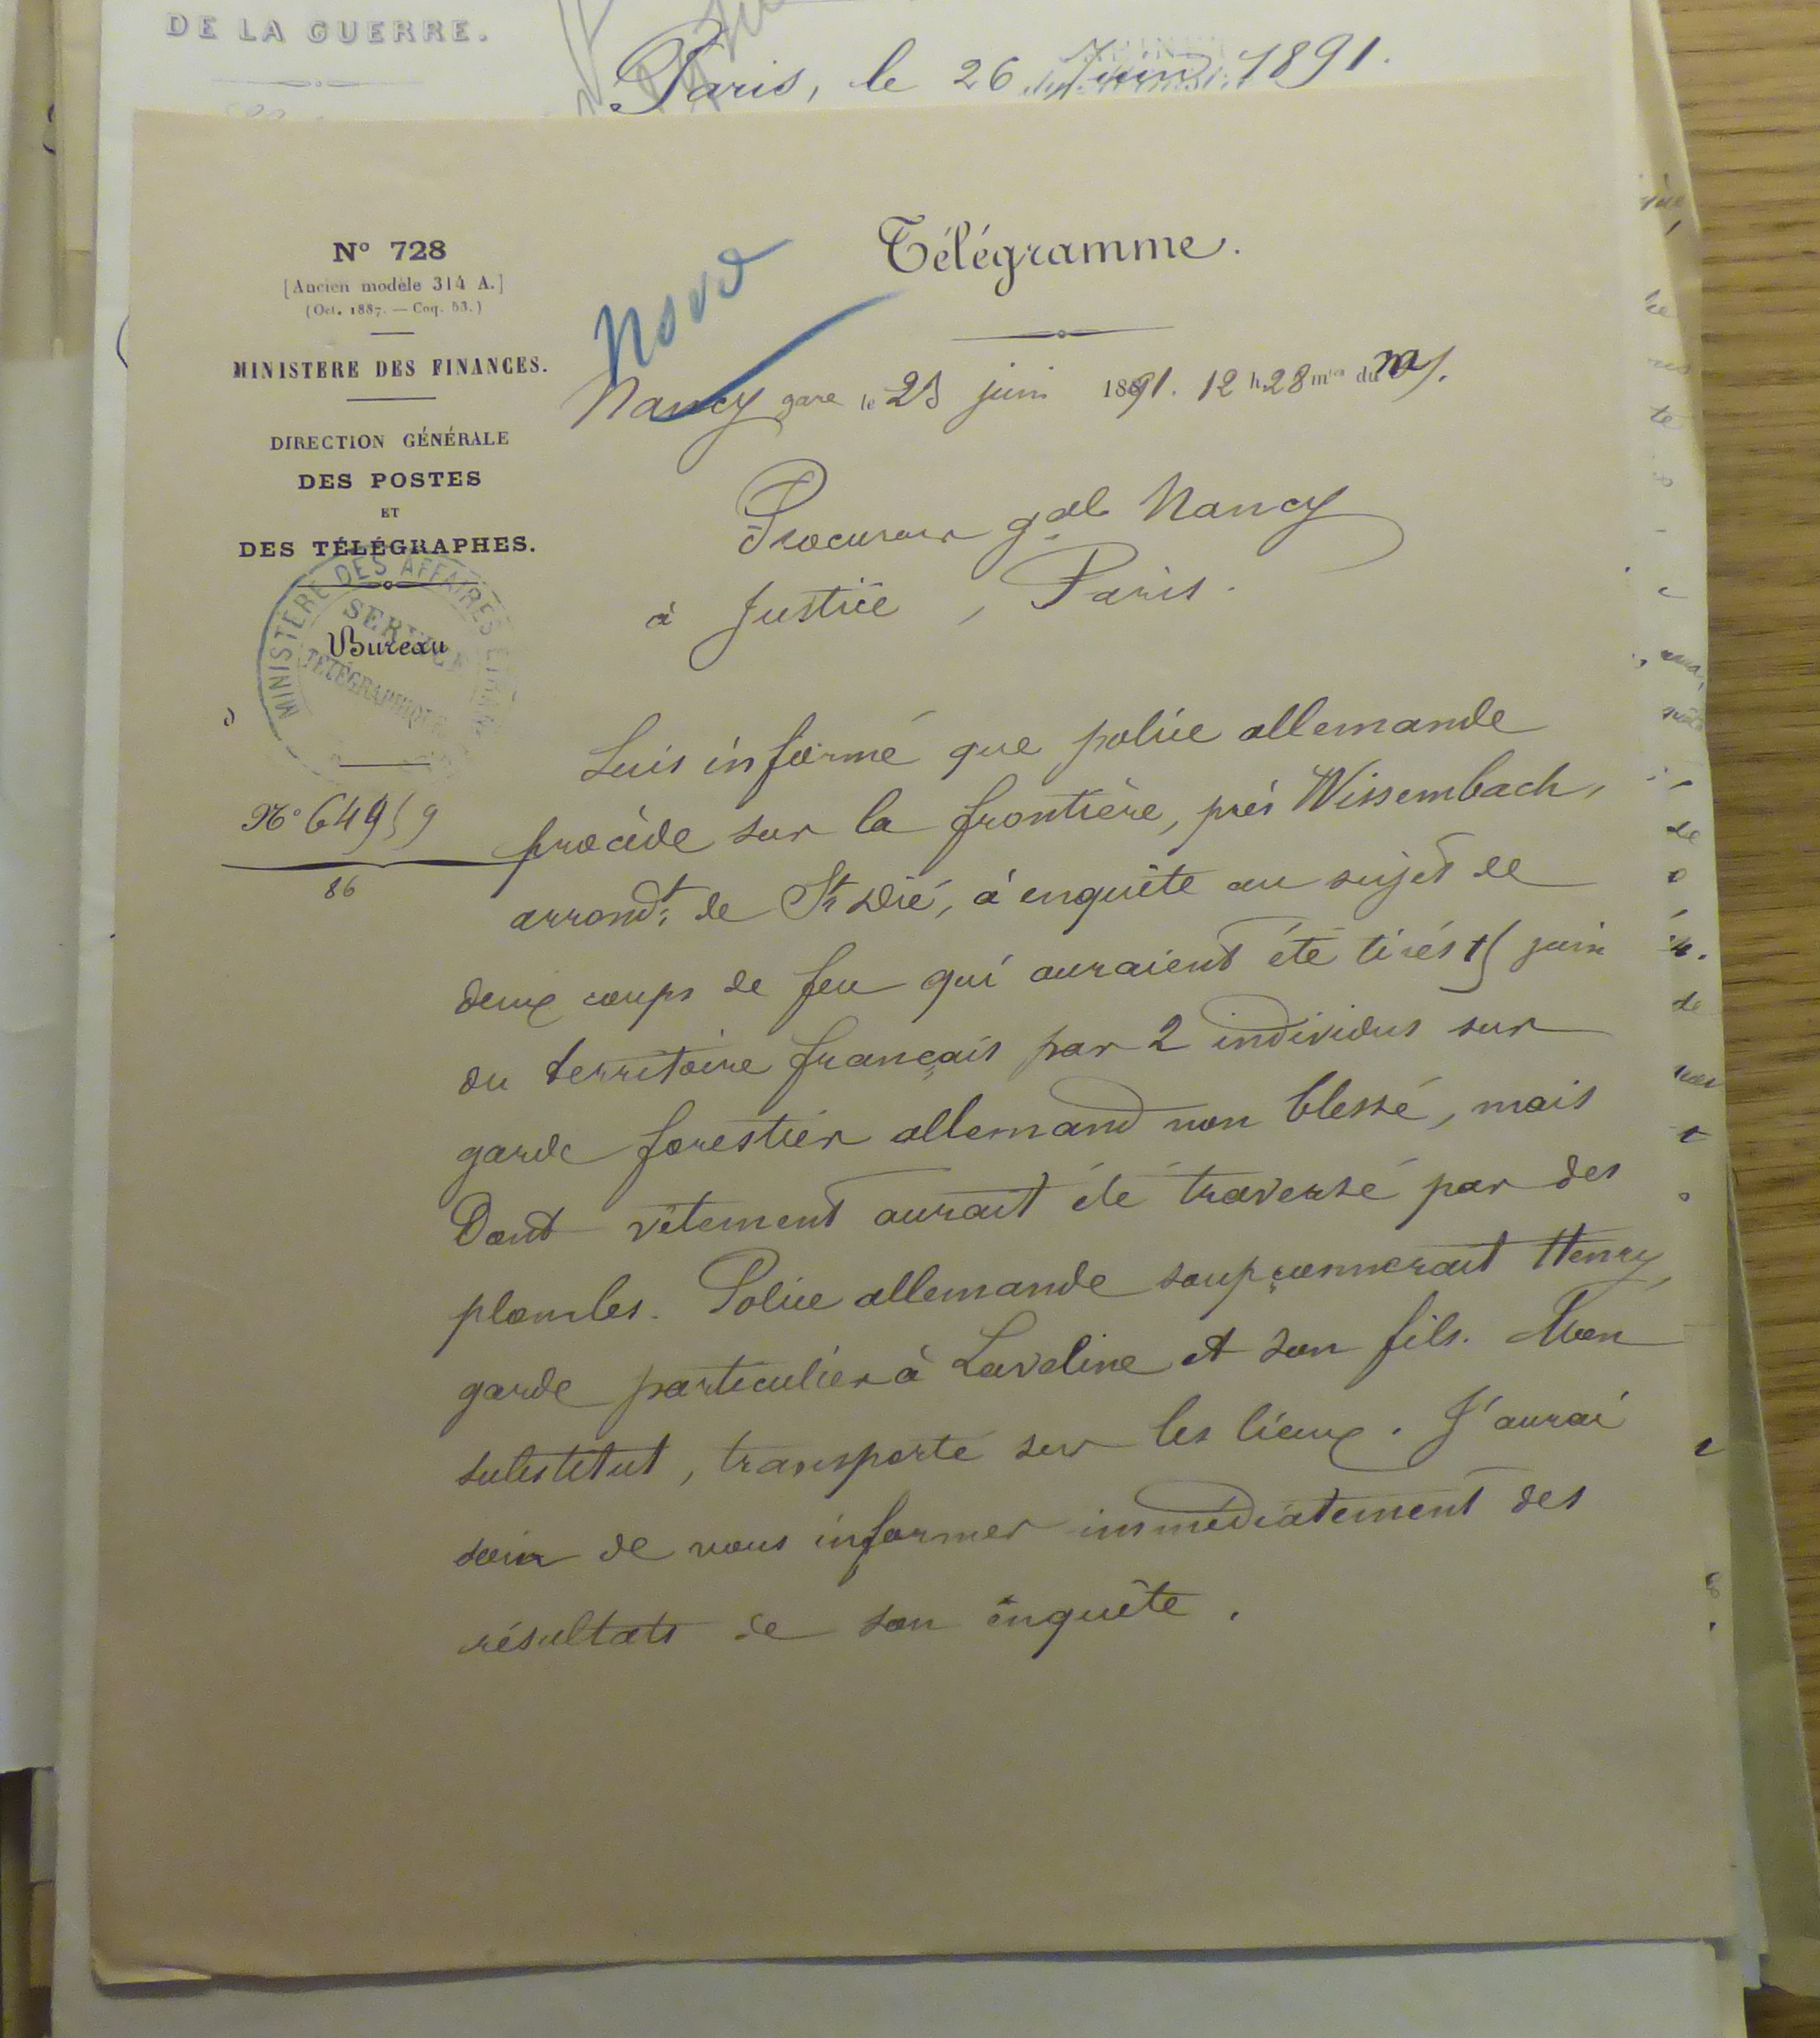 DE LA GUERRE.
Paris, le 26 Juin 1891.
N° 728
[Ancien modèle 314 A.]
(Oct. 1887. — Coq. 53.)
MINISTERE DES FINANCES.
DIRECTION GÉNÉRALE
DES POSTES
ET
DES TÉLÉGRAPHES.
MINISTÈRE DES AFFAIRES
SERVICE
TÉLÉGRAPHIQUE
Bureau
N° 64959
86
Télégramme.
Nord
Nancy gare le 25 juin 1891. 12 h. 28 mtes du
Procureur gal Nancy
à Justice, Paris.
Suis informé que police allemande
procède sur la frontière, près Wissembach,
arrondt. de St Dié, à enquête au sujet de
deux coups de feu qui auraient été tirés 15 juin
du territoire français par 2 individus sur
garde forestier allemand non blessé, mais
Dont vêtement aurait été traversé par des
plombs. Police allemande soupçonnerait Henry,
garde particulier à Laveline et son fils. Mon
substitut, transporté sur les lieux. J'aurai
soin de vous informer immédiatement des
résultats de son enquête.